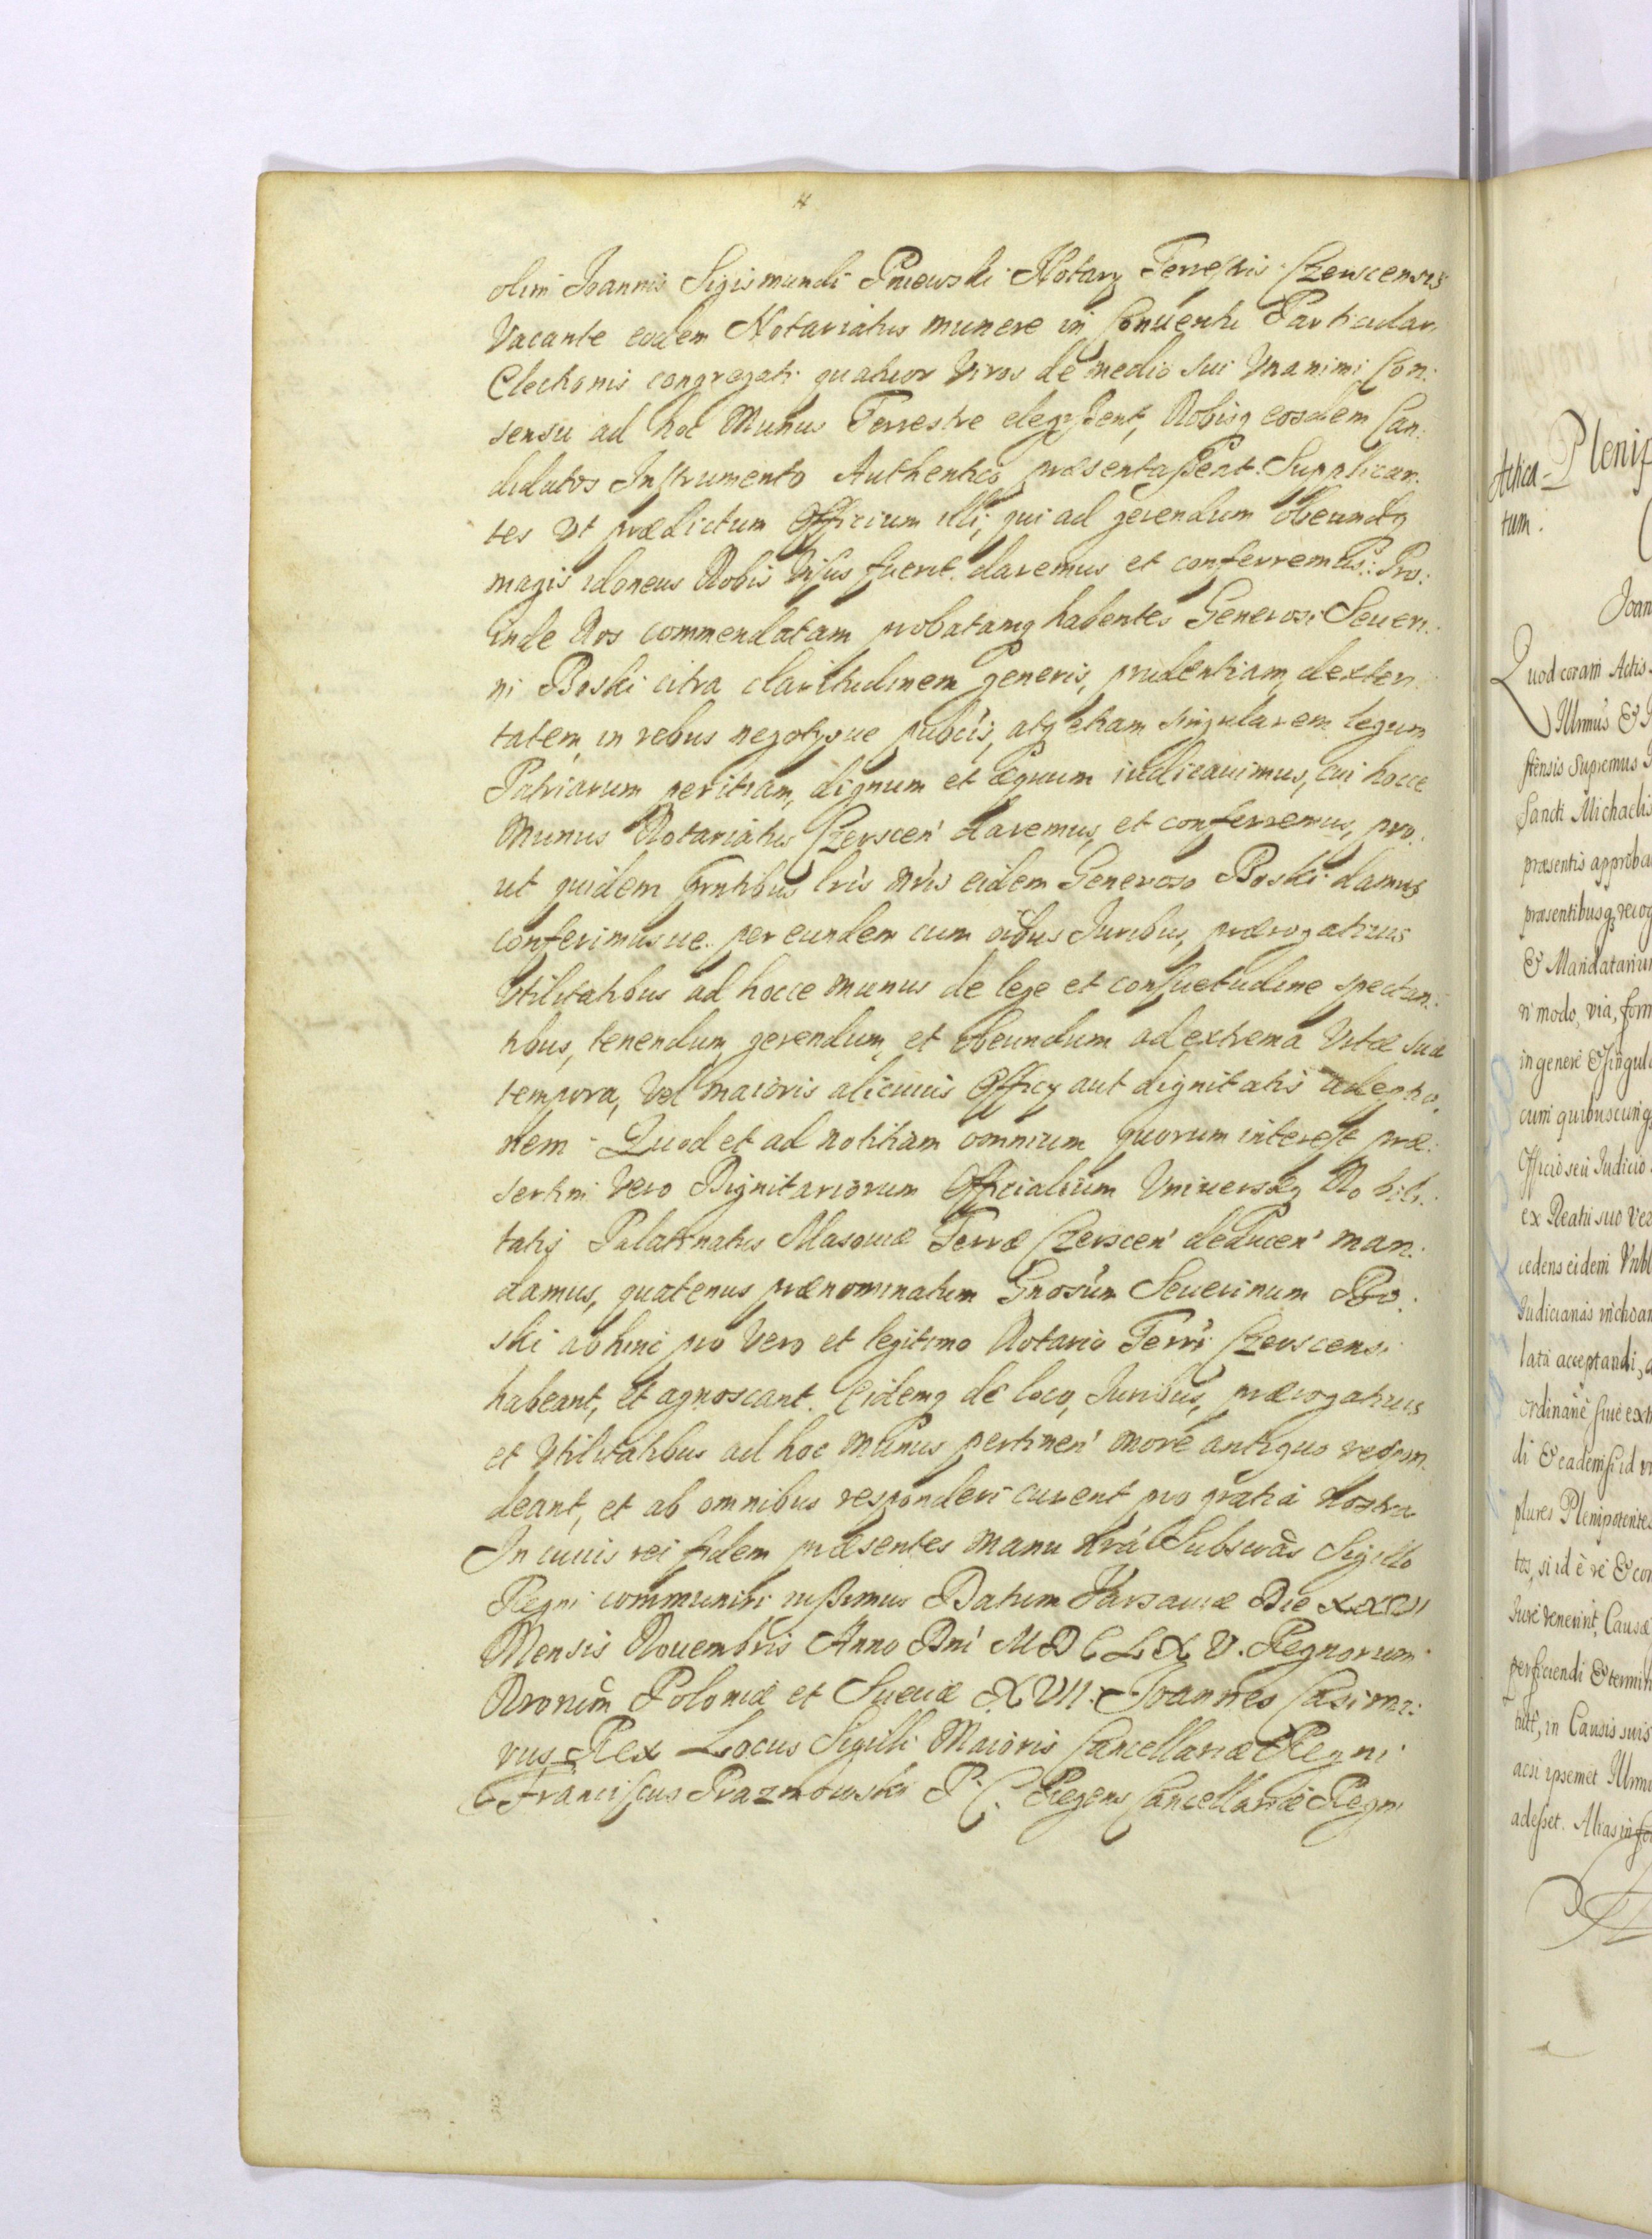 olim Joannis Sigismundi Pniewski Notarÿ Terrestris Czerscensis
Vacante eodem Notariatus munere in Conuentu Particulari
Electionis congregati quatuor Viros de medio sui Vnanimi Con:
sensu ad hoc Munus Terrestre elegissent, Nobisq eosdem Can:
didatos Instrumento Authentico præsentassent. Supplican:
tes Vt prædictum Officium illi, qui ad gerendum obeundq
magis idoneus Nobis Visus fuerit daremus et conferremus: Pro:
inde Nos commendatam probatamq habentes Generosi Seueri:
ni Boski citra claritudinem generis, prudentiam, dexteri
tatem in rebus negotÿsue publis, atq etiam singularem legum
Patriarum peritiam, dignum et æquum iudicauimus, cui hocce
Munus Notariatus Czerscen' daremus, et conferremus, pro:
ut quidem pntibus lris nris eidem Generoso Boski damus
conferimusue per eundem cum oibus Juribus, prærogatiuis
Vtilitatibus ad hocce munus de lege et consuetudine spectan:
tibus, tenendum, gerendum, et obeundum ad extrema Vitæ suæ
tempora, Vel maioris alicuius Officÿ aut dignitatis adeptio:
nem - Quod et ad notitiam omnium quorum interest præ:
sertim Vero Dignitariorum Officialium Vniuersæq Nobili:
tatis Palatinatus Masouiæ Terræ Czerscen' deducen' man:
damus, quatenus prænominatum Gnosum Seuerinum Bo:
ski abhinc pro Vero et legitimo Notario Terri Czerscensi
habeant, et agnoscant. Eidemq de loco, Juribus, prærogatiuis
et Vtilitatibus ad hoc munus pertinen' more antiquo respon
deant, et ab omnibus responderi curent pro gratia nostra
In cuius rei fidem præsentes manu nrá Subscrās Sigillo
Regni communiri iussimus Datum Varsauiæ Die XXVII
Mensis Nouembris Anno Dni M D C L X V. Regnorum
Nrorum Poloniæ et Sueciæ XVII. Joannes Casimi:
rus Rex Locus Sigilli Maioris Cancellariæ Regni
Franciscus Prazmowski P. C. Regens Cancellariæ Regni
Actica
tum.
Plenip
Joan
Quod coram Actis
Illrmus &
stensis Supremus
Sancti Michaelis
præsentis approba
præsentibusq recog
& Mandatarium
n' modo, via, form
in genere & singul
cum quibuscunq
Officio seu Judicio
ex Reatu suo
cedens eidem
Judiciarias inchoan
lata acceptandi,
ordinarie siue extr
di & eadem si id
plures Plenipotentes
tos, si id è re & con
Jure venerint, Causæ
perficiendi & termin
in Causis suis
acsi ipsemet Illrmus
adesset. Alias in